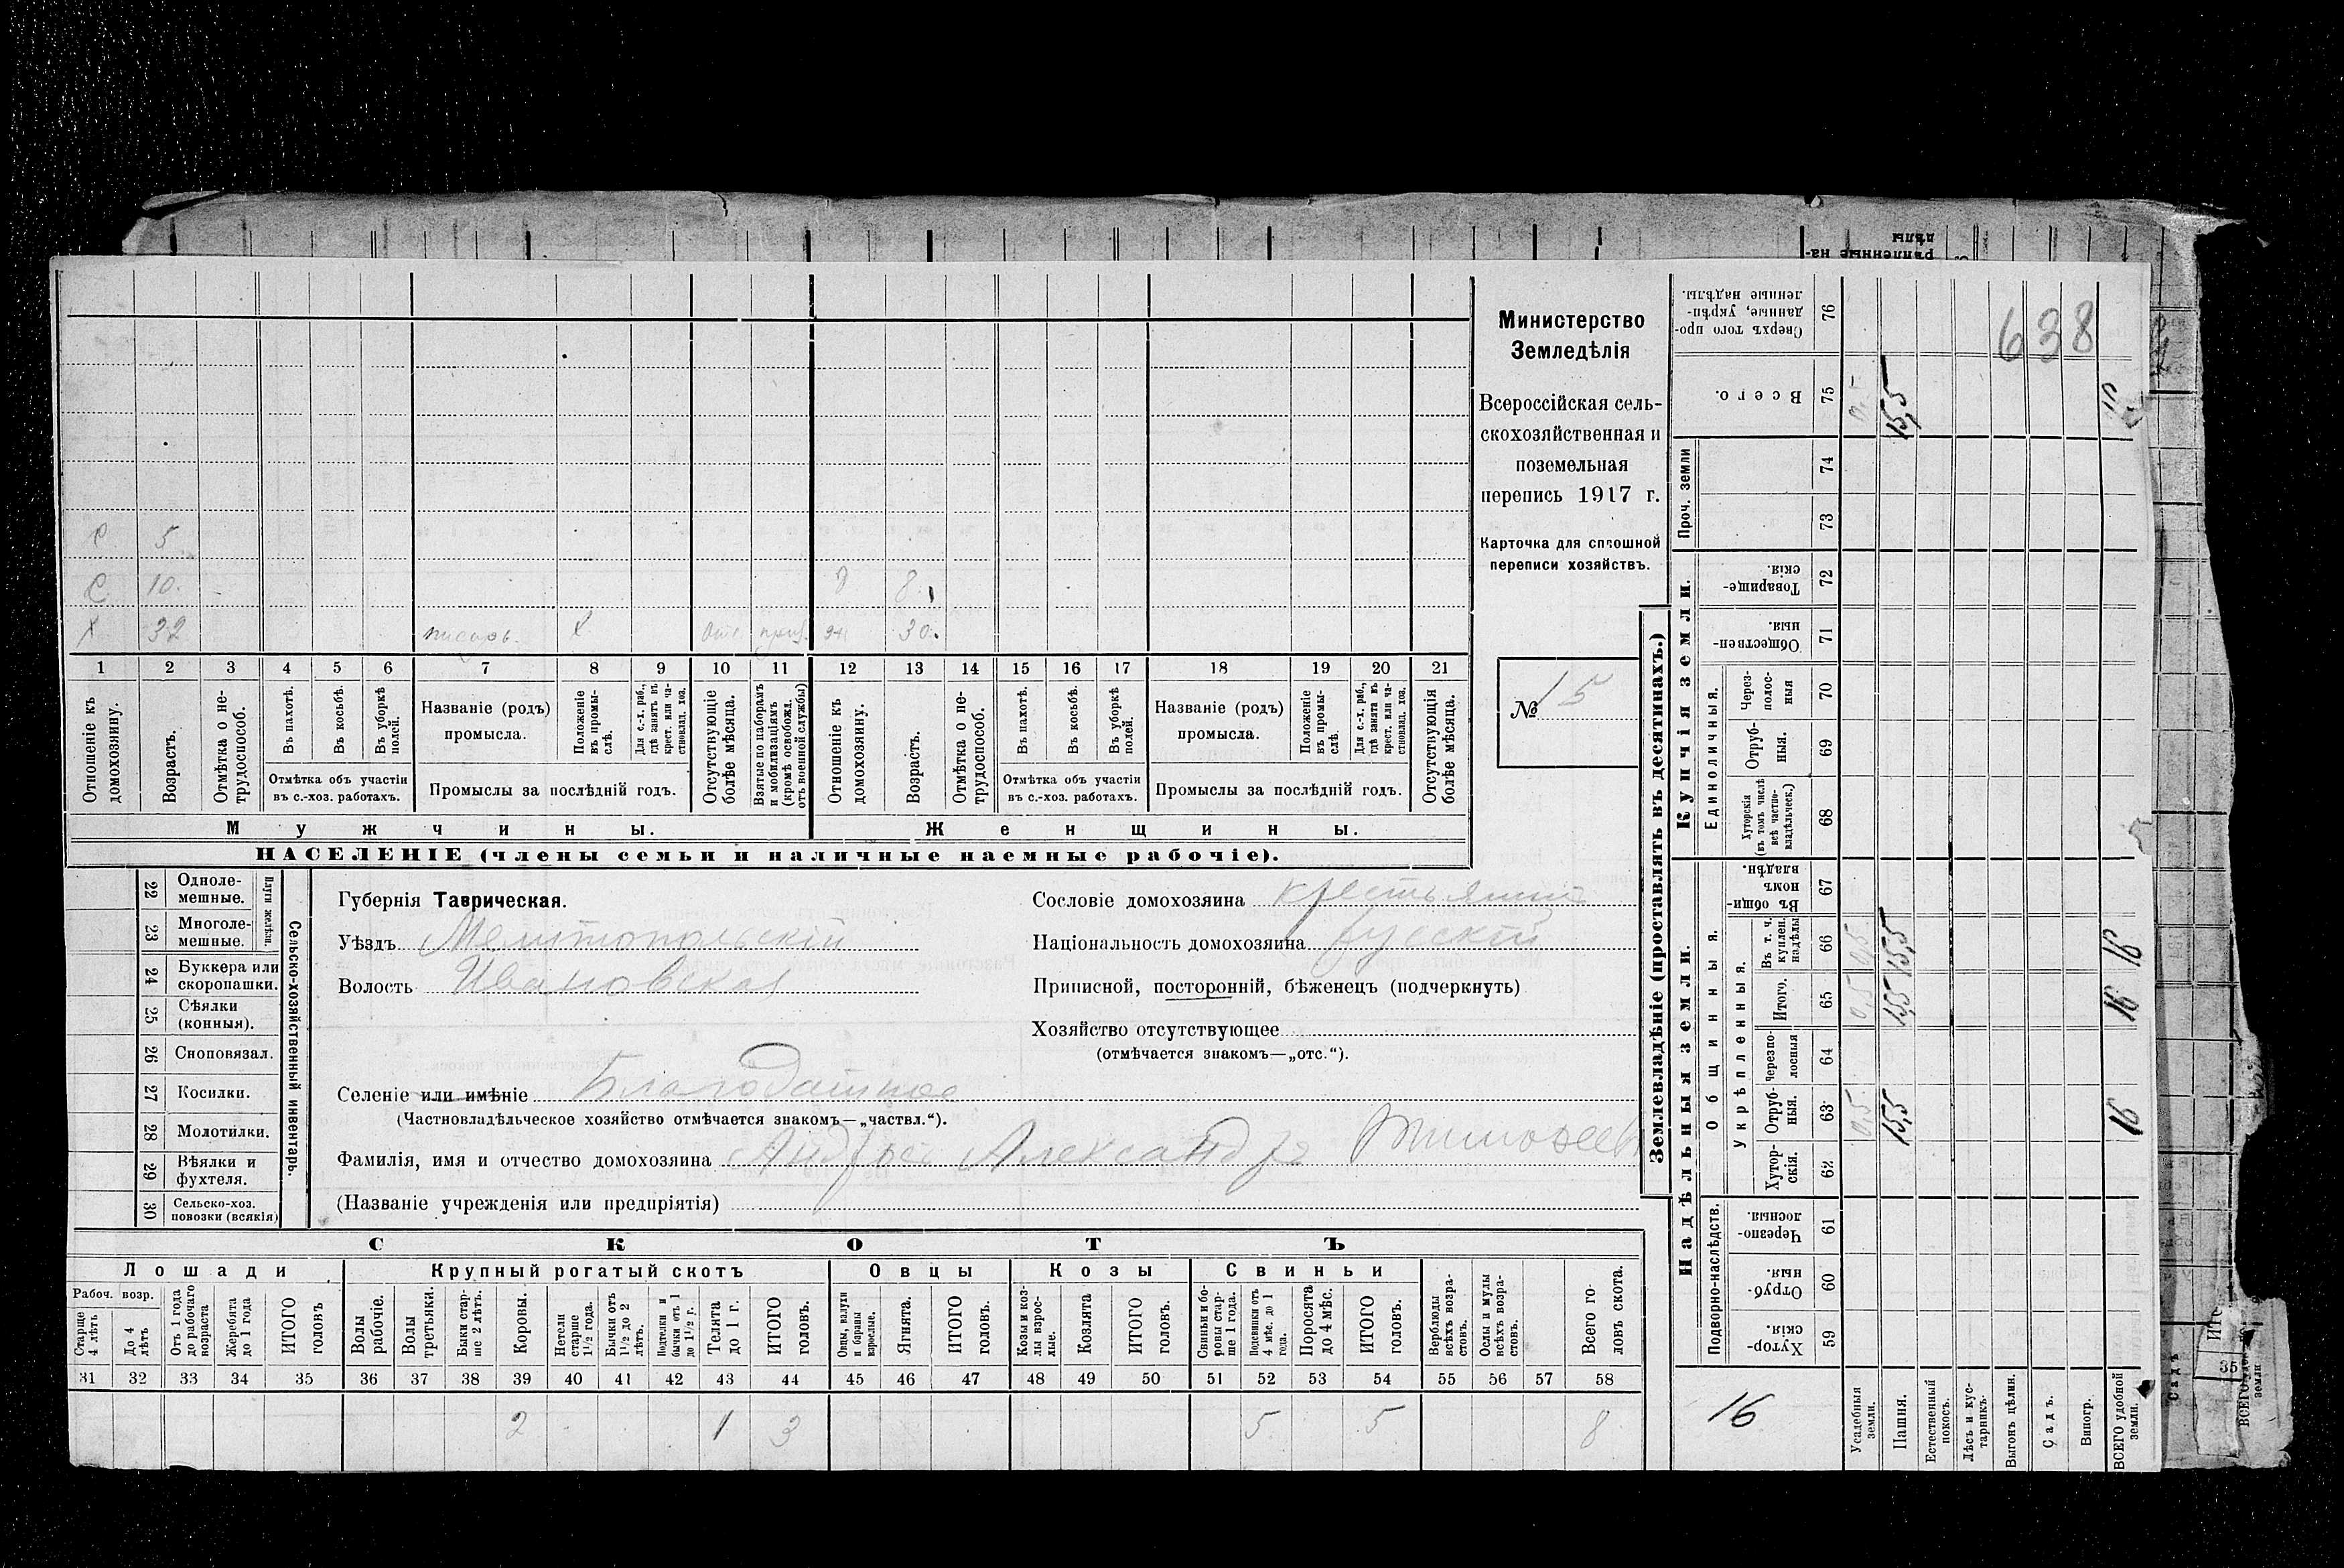 Министерство
Земледѣлія
Всероссійская сель-
скохозяйственная и
поземельная
перепись 1917 г.
Карточка для сплошной
переписи хозяйствъ.
№ 15
638
С 5
С 10. Д 8.
Х 32 писарь. Х Отс. приз. Ж 30.
1 2 3 4 5 6 7 8 9 10 11 12 13 14 15 16 17 18 19 20 21
Отношеніе къ домохозяину.
Возрастъ.
Отмѣтка о не-трудоспособ.
Въ пахотѣ.
Въ косьбѣ.
Въ уборкѣ полей.
Отмѣтка объ участіи въ с.-хоз. работахъ.
Названіе (родъ) промысла.
Положеніе въ промы-слѣ.
Для с.-х. раб., гдѣ занятъ въ крест. или ча-стновлад. хоз.
Промыслы за послѣдній годъ.
Отсутствующіе болѣе мѣсяца.
Взятые по наборамъ и мобилизаціямъ (кромѣ освобожд. отъ военной службы)
Отношеніе къ домохозяину.
Возрастъ.
Отмѣтка о не-трудоспособ.
Въ пахотѣ.
Въ косьбѣ.
Въ уборкѣ полей.
Отмѣтка объ участіи въ с.-хоз. работахъ.
Названіе (родъ) промысла.
Положеніе въ промы-слѣ.
Для с.-х. раб., гдѣ занята въ крест. или ча-стновлад. хоз.
Промыслы за послѣдній годъ.
Отсутствующія болѣе мѣсяца.
Мужчины. Женщины.
НАСЕЛЕНІЕ (члены семьи и наличные наемные рабочіе).
22 Одноле-мешные.
23 Многоле-мешные.
Плуги желѣзн.
24 Буккера или скоропашки.
25 Сѣялки (конныя).
26 Сноповязал.
27 Косилки.
28 Молотилки.
29 Вѣялки и фухтеля.
30 Сельско-хоз. повозки (всякія)
Сельско-хозяйственный инвентарь.
Губернія Таврическая.
Уѣздъ Мелитопольскій
Волость Ивановская
Сословіе домохозяина крестьянинъ
Національность домохозяина русскій
Приписной, посторонній, бѣженецъ (подчеркнуть)
Хозяйство отсутствующее
(отмѣчается знакомъ—„отс.“).
Селеніе или имѣніе Благодатное
(Частновладѣльческое хозяйство отмѣчается знакомъ—„частвл.“).
Фамилія, имя и отчество домохозяина Александр Тимофеев
(Названіе учрежденія или предпріятія)
СКОТЪ
Лошади Крупный рогатый скотъ Овцы Козы Свиньи
Рабоч. возр.
Старше 4 лѣтъ
До 4 лѣтъ
Отъ 1 года до рабочаго возраста
Жеребята до 1 года
ИТОГО головъ
Волы рабочіе.
Волы третьяки.
Быки стар-ше 2 лѣтъ.
Коровы.
Нетели старше 1½ года.
Бычки отъ 1½ до 2 лѣтъ.
Подтелки и бычки отъ 1 до 1½ г.
Телята до 1 г.
ИТОГО головъ.
Овцы, валухи и бараны взрослые.
Ягнята.
ИТОГО головъ.
Козы и коз-лы взрос-лые.
Козлята
ИТОГО головъ.
Свиньи и бо-ровы стар-ше 1 года.
Подсвинки отъ 4 мѣс. до 1 года.
Поросята до 4 мѣс.
ИТОГО головъ.
Верблюды всѣхъ возра-стовъ.
Ослы и мулы всѣхъ возра-стовъ.
Всего го-ловъ скота.
31 32 33 34 35 36 37 38 39 40 41 42 43 44 45 46 47 48 49 50 51 52 53 54 55 56 57 58
2 1 3 5 5 8
Землевладѣніе (проставлять въ десятинахъ.)
Надѣльныя земли. Купчія земли.
Проч. земли
Сверхъ того про-данные, укрѣп-ленные надѣлы. 76
Всего. 75 0,5 15,5 16
74
73
Товарище-скія. 72
Обществен-ныя. 71
Единоличныя.
Через-полос-ныя 70
Отруб-ныя. 69
Хуторскія (въ томъ числѣ всѣ частно-владѣльческ.) 68
Общинныя.
Въ общин-номъ владѣн. 67
Укрѣпленныя.
Въ т. ч. куплен. надѣлы 66 0,5 15,5 16
Итого. 65 0,5 15,5 16
Черезпо-лосныя 64
Отруб-ныя. 63 0,5 15,5 16
Хутор-скія. 62
Подворно-наслѣдств.
Черезпо-лосныя. 61
Отруб-ныя. 60
Хутор-скія. 59
16
Усадебныя земли.
Пашня.
Естественный покосъ.
Лѣсъ и кус-тарникъ.
Выгонъ цѣлин.
Садъ.
Виногр.
ВСЕГО удобной земли.
Садъ
35